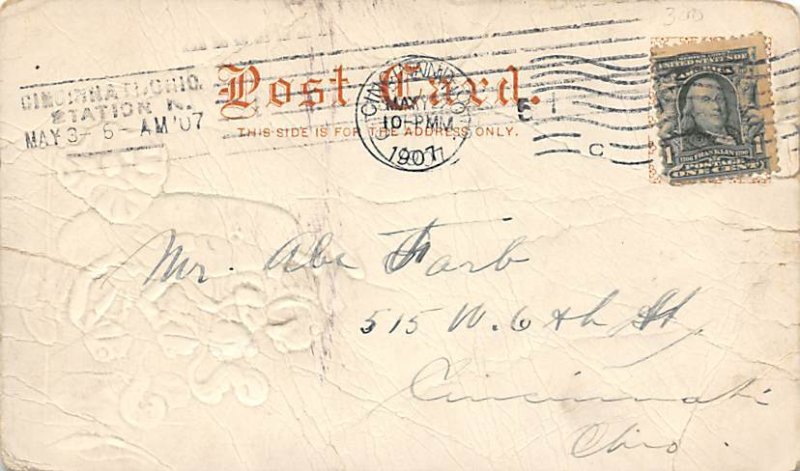 3
CINCINNATI, OHIO.
STATION K.
MAY 3- 5- AM '07
Post Card.
THIS SIDE IS FOR THE ADDRESS ONLY.
MAY
10-PM
1907
C
1
1
FRANKLIN
POSTAGE
ONE CENT
Mr. Abe Farb
515 W. 6th St.
Cincinnati
Ohio.